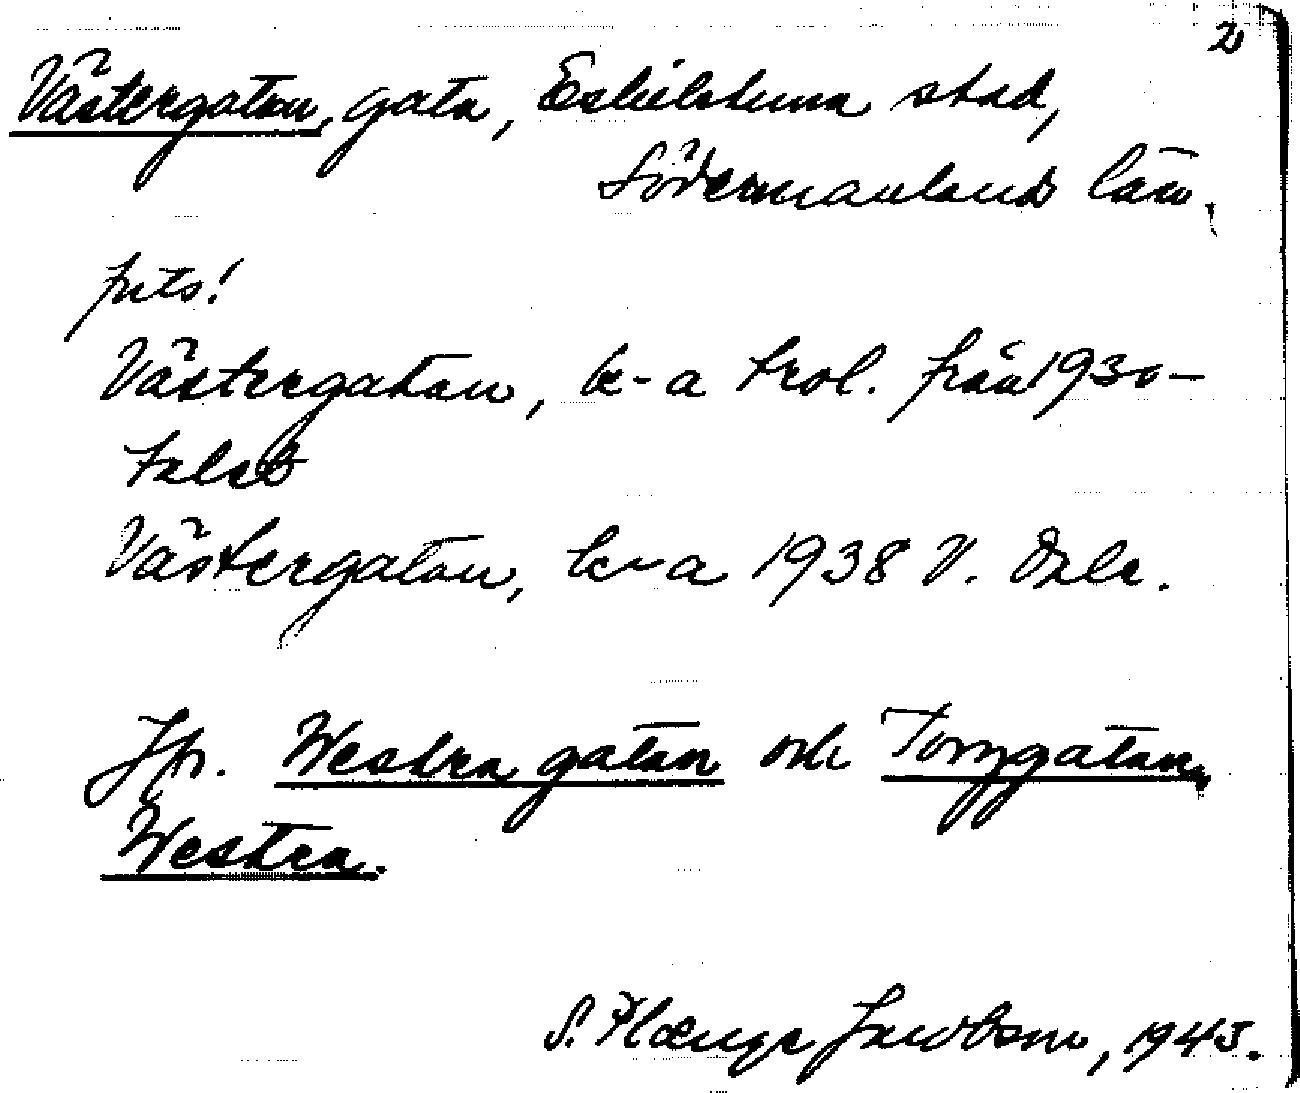 2
Västergatan, gata, Eskilstuna stad,
Södermanlands län.
forts!
Västergatan, k-a trol. från 1930-
talet
Västergatan, k-a 1938 V.
Jfr. Westra gatan och Torggatan,
Westra.
S. Plænge Jacobson, 1945.